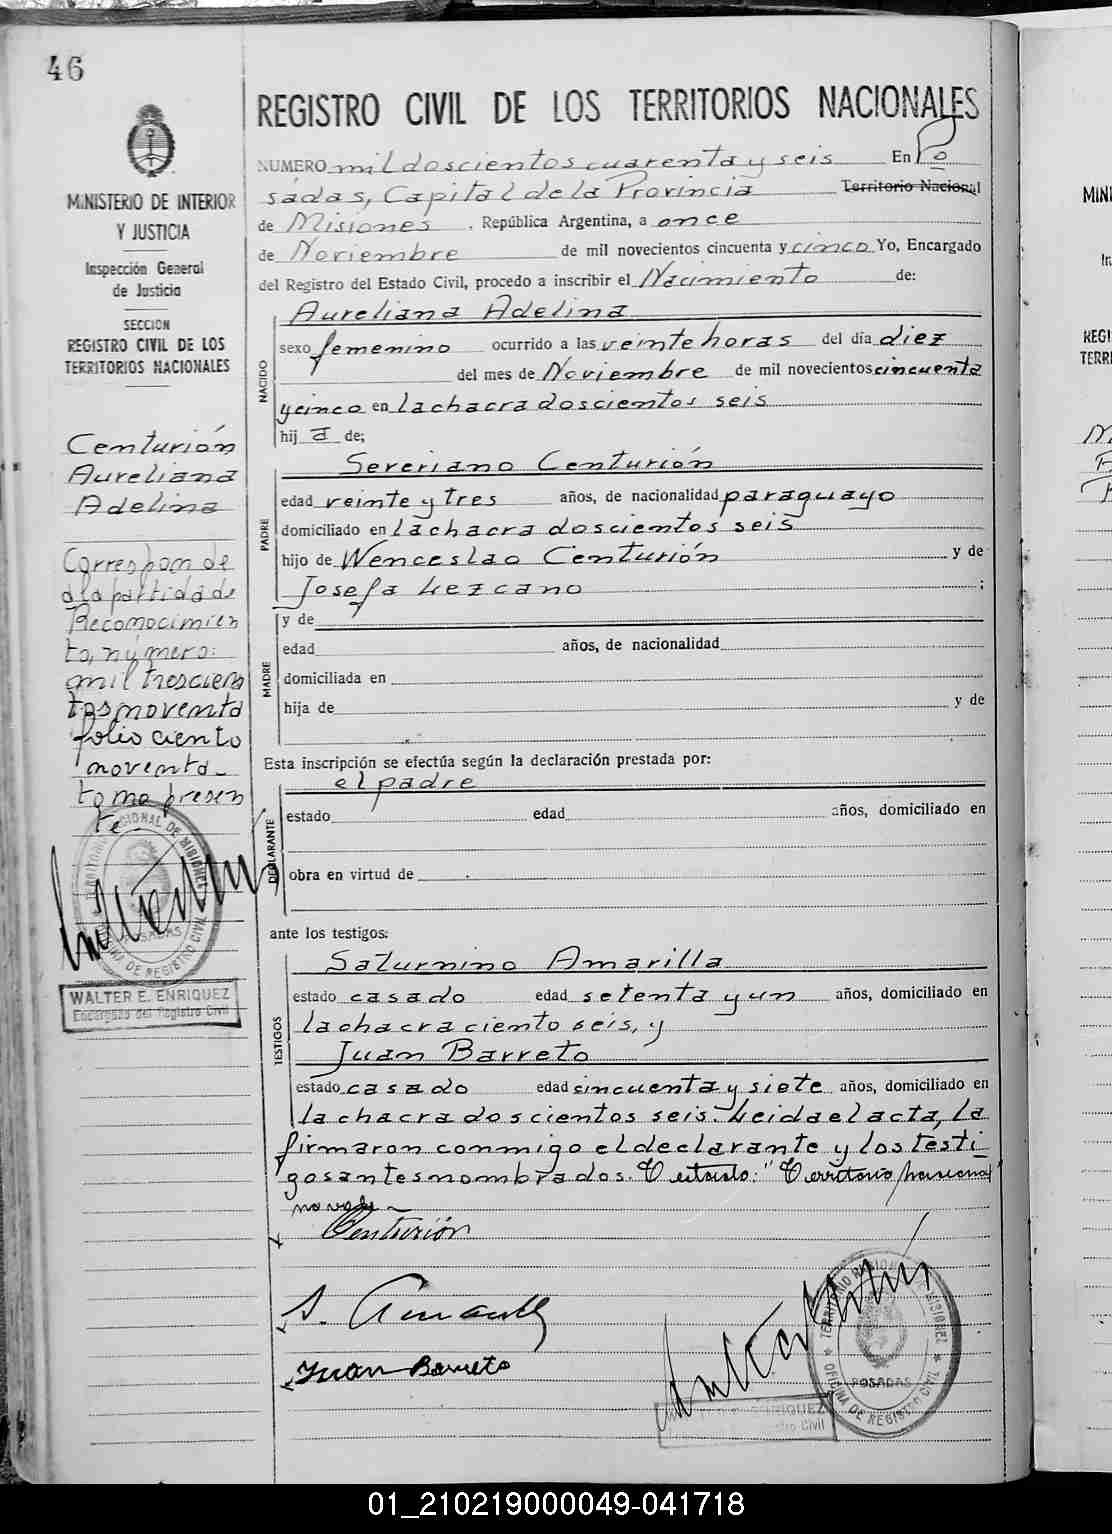 46
MINISTERIO DE INTERIOR
Y JUSTICIA
Inspección General
de Justicia
SECCION
REGISTRO CIVIL DE LOS
TERRITORIOS NACIONALES
Centurión
Aureliana
Adelina
Correspon de
a la partida de
Reconocimien
to, número:
mil trescien
tos noventa
folio ciento
noventa
tomo presen
te
POSADAS
OFICINA DE REGISTRO CIVIL
WALTER E. ENRIQUEZ
Encargado del Registro Civil
REGISTRO CIVIL DE LOS TERRITORIOS NACIONALES
NUMERO mil doscientos cuarenta y seis En Po
sádas, Capital de la Provincia Territorio Nacional
de Misiones, República Argentina, a once
de Noviembre de mil novecientos cincuenta y cinco Yo, Encargado
del Registro del Estado Civil, procedo a inscribir el Nacimiento de:
NACIDO
Aureliana Adelina
sexo femenino ocurrido a las veinte horas del día diez
del mes de Noviembre de mil novecientos cincuenta
y cinco en la chacra doscientos seis
hij a de;
PADRE
Severiano Centurión
edad veinte y tres años, de nacionalidad paraguayo
domiciliado en la chacra doscientos seis
hijo de Wenceslao Centurión y de
Josefa Lezcano ;
MADRE
y de
edad años, de nacionalidad
domiciliada en
hija de y de
Esta inscripción se efectúa según la declaración prestada por:
DECLARANTE
el padre
estado edad años, domiciliado en
obra en virtud de
ante los testigos:
TESTIGOS
Saturnino Amarilla
estado casado edad setenta y un años, domiciliado en
la chacra ciento seis, y
Juan Barreto
estado casado edad cincuenta y siete años, domiciliado en
la chacra doscientos seis. Leida el acta, la
firmaron conmigo el declarante y los testi
gos antes nombrados. Testado: "Territorio Nacional
no vale
Centurión
S. Amarilla
Juan Barreto
TERRITORIO NACIONAL DE MISIONES
POSADAS
OFICINA DE REGISTRO CIVIL
01_210219000049-041718